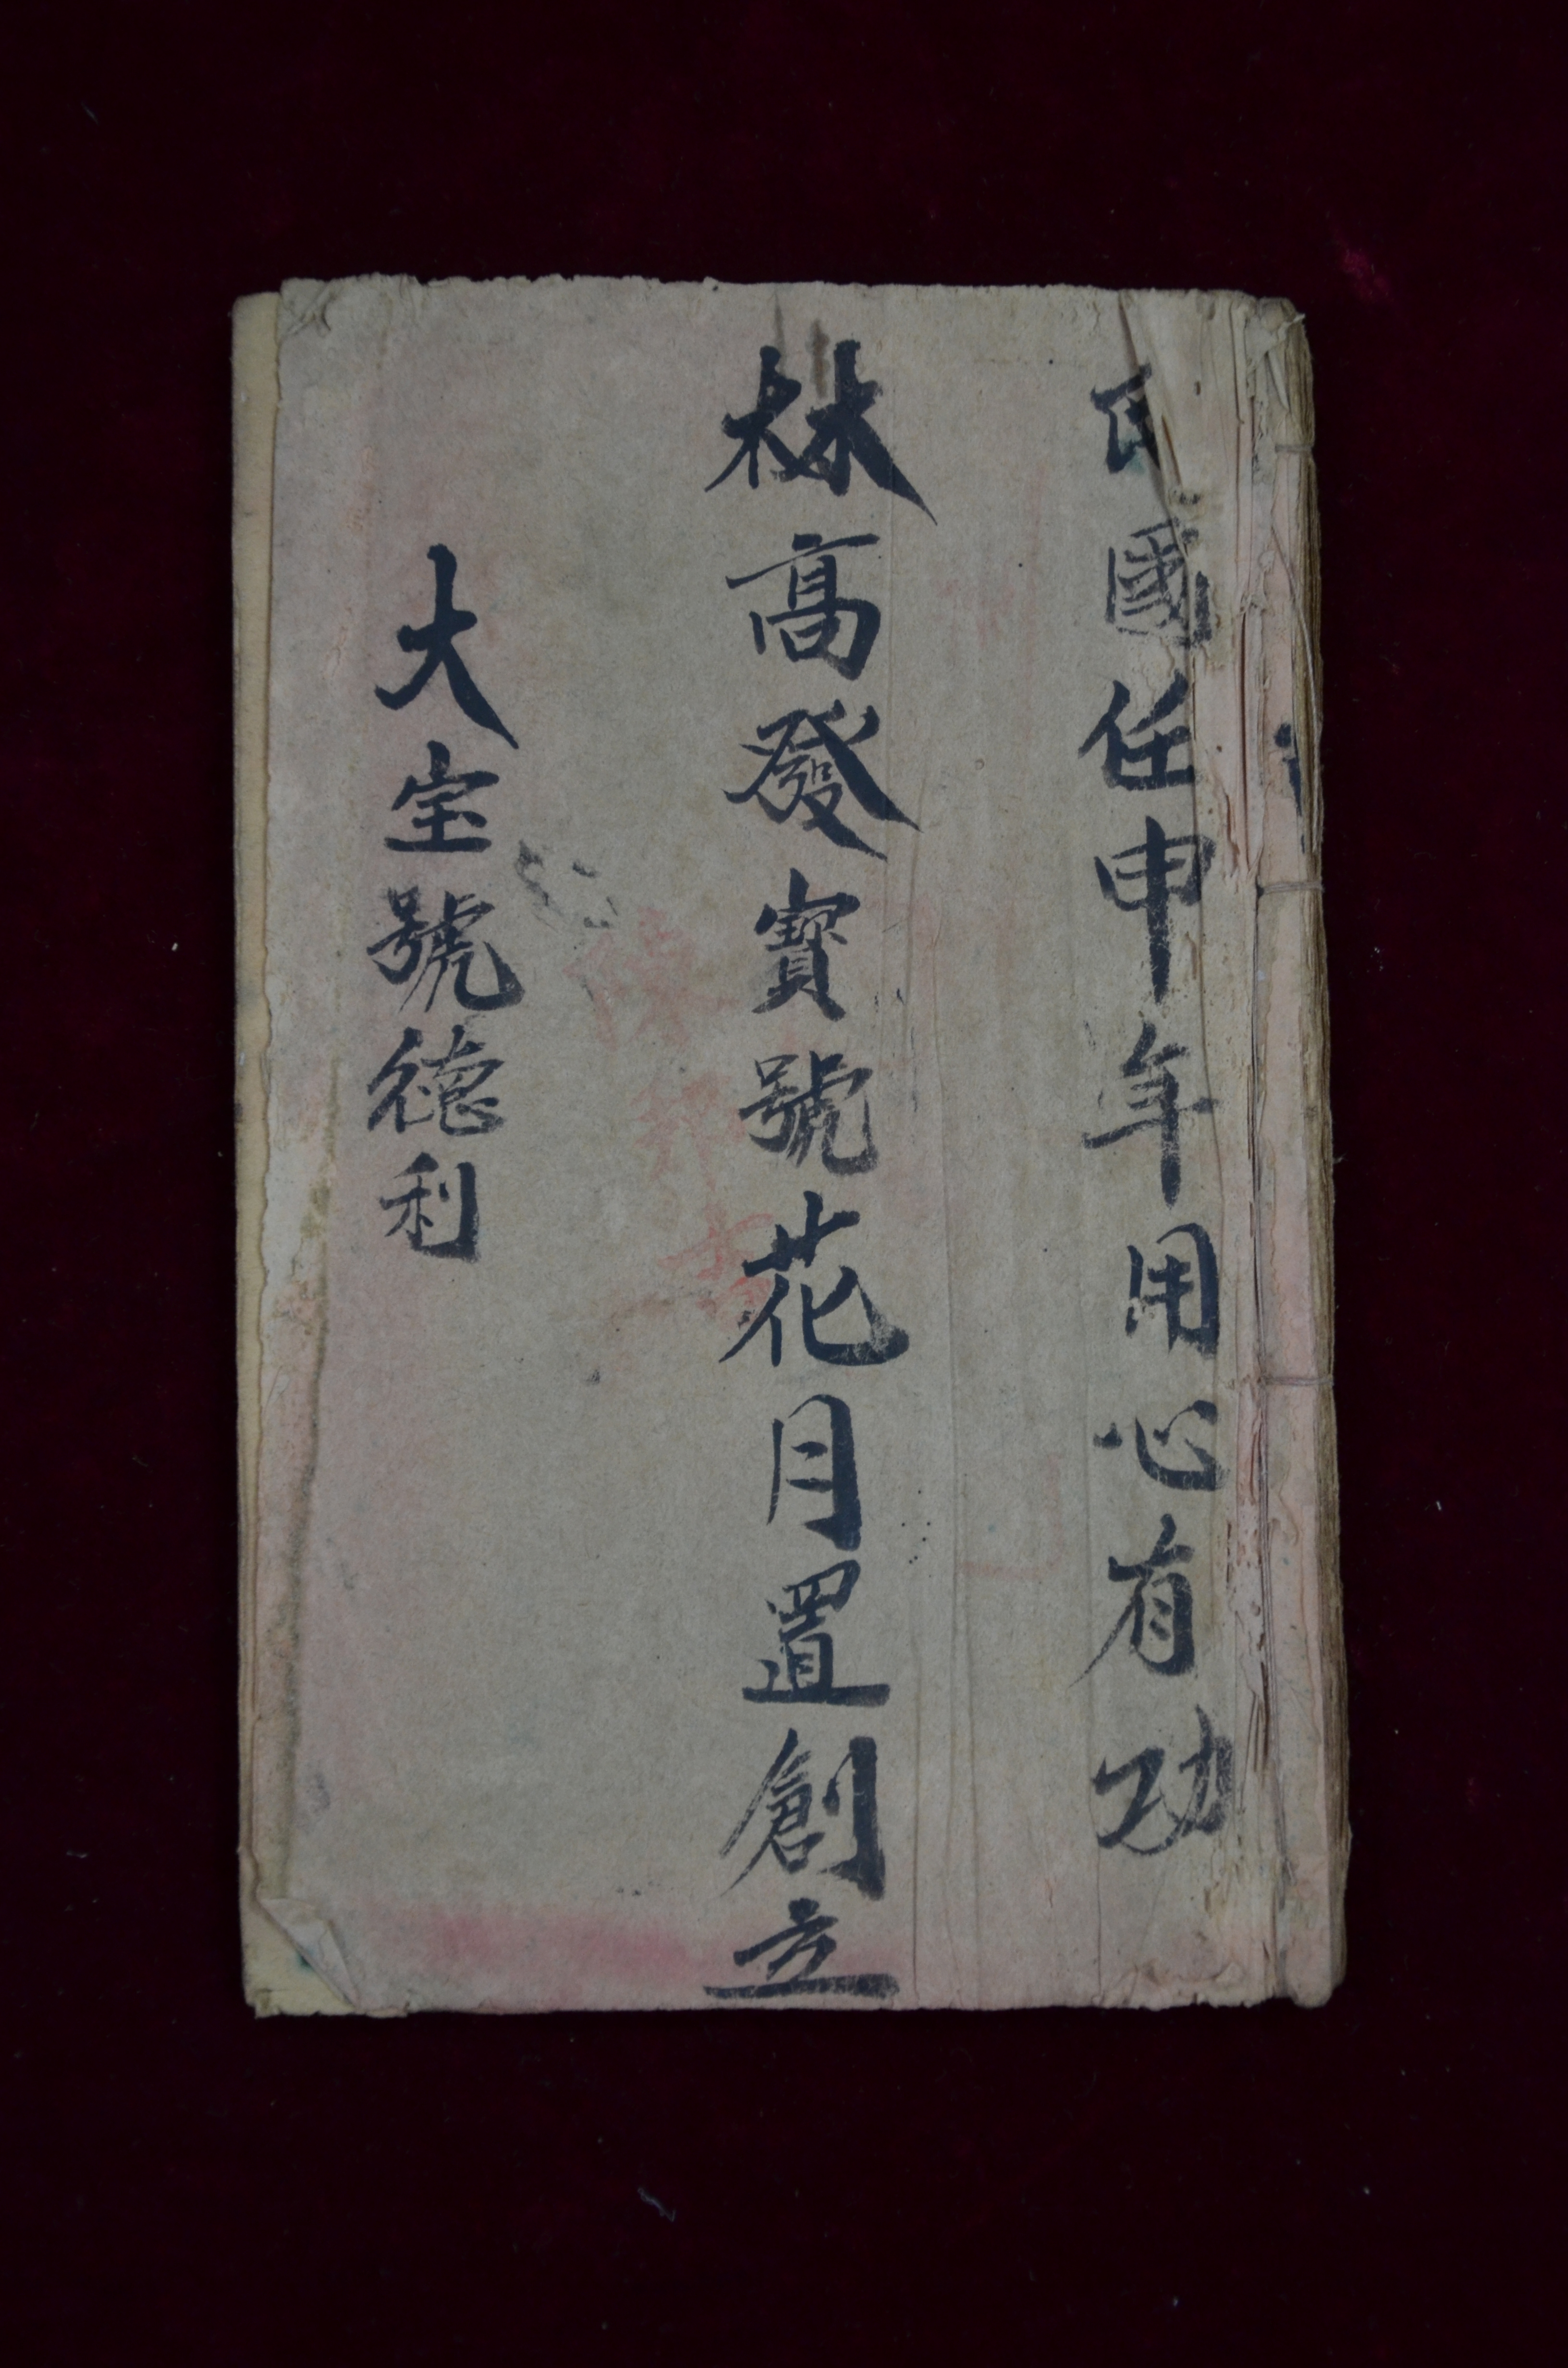 民國任申年用心有功
林高發寳號花月置創立
大宝號德利